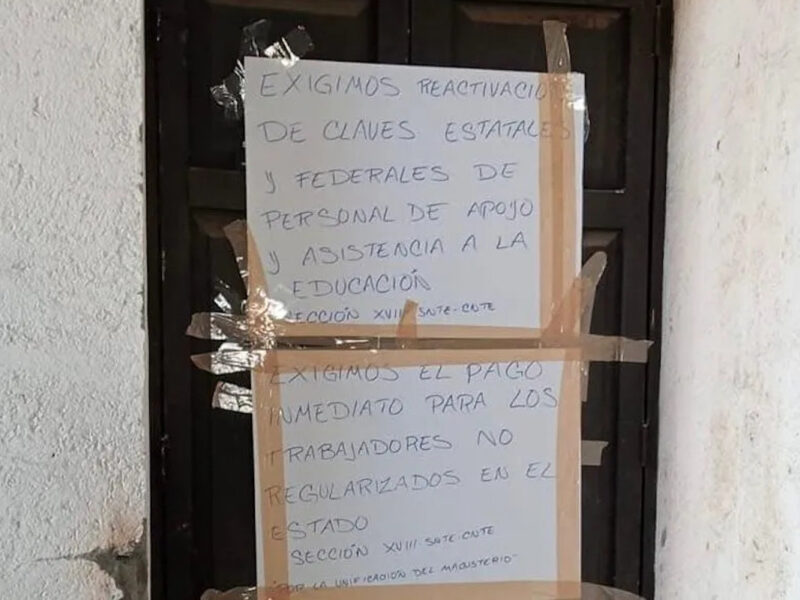 EXIGIMOS REACTIVACIO
DE CLAVES ESTATALES
y FEDERALES DE
PERSONAL DE APOYO
y ASISTENCIA A LA
EDUCACIÓN
SECCIÓN XVIII SNTE-CNTE
EXIGIMOS EL PAGO
INMEDIATO PARA LOS
TRABAJADORES NO
REGULARIZADOS EN EL
ESTADO
SECCIÓN XVIII SNTE-CNTE
"POR LA UNIFICACIÓN DEL MAGISTERIO"